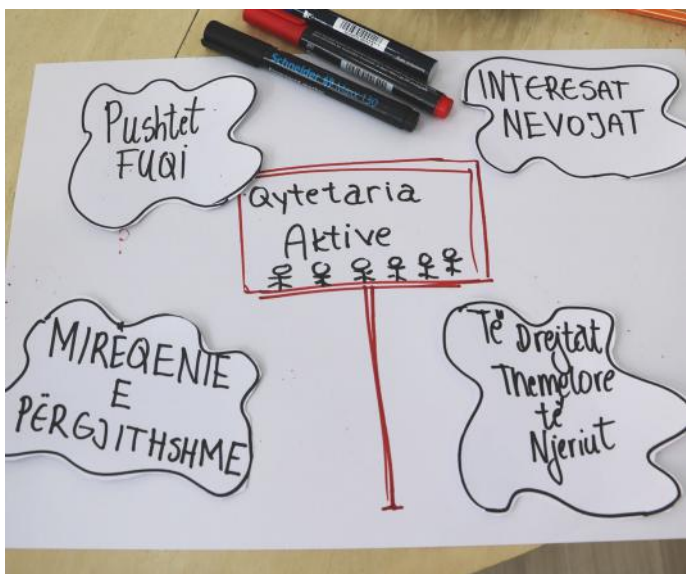 Schneider
Maxx 130
Pushtet
FUQI
INTERESAT
NEVOJAT
Qytetaria
Aktive
MIREQENIE
E
PËRGJITHSHME
Të Drejtat
Themelore
të
Njeriut